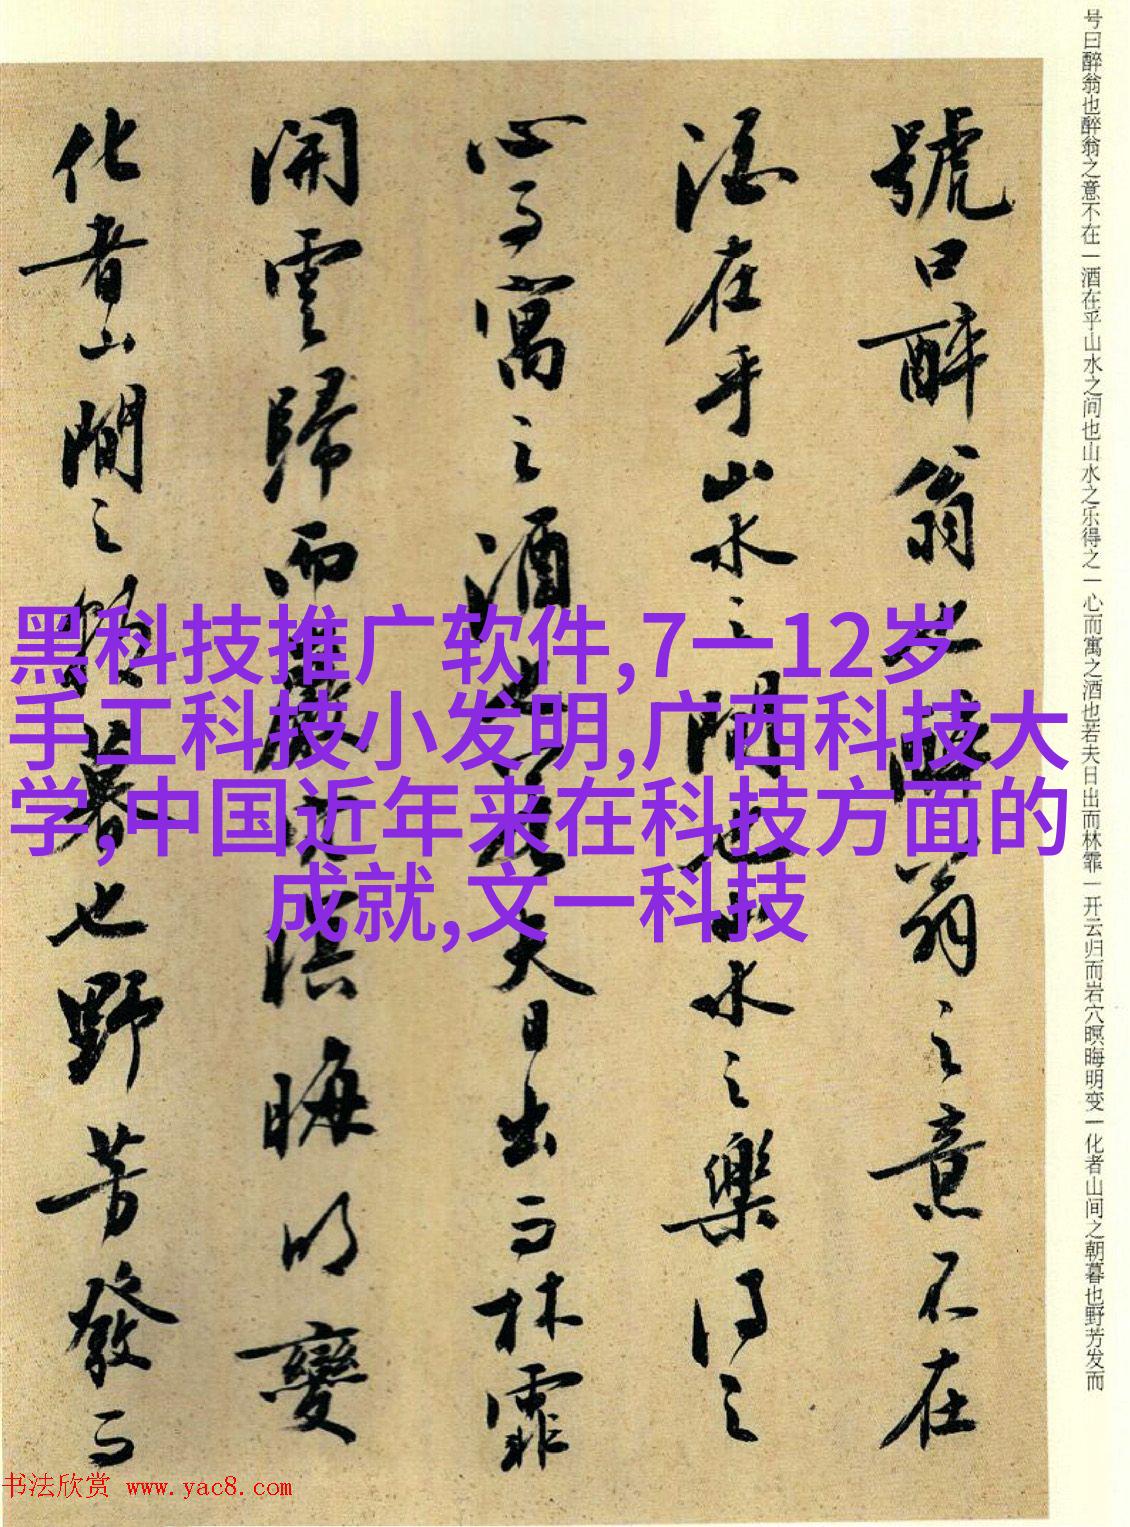 号曰醉翁也醉翁之意不在一酒在乎山水之间也山水之乐得之一心而寓之酒也若夫日出而林霏一开云归而岩穴暝晦明变一化者山间之朝暮也野芳发而
號曰醉翁也醉翁之意不在
酒在乎山水之間也山水之樂得之
心而寓之酒也若夫日出而林霏
開雲歸而巖穴暝晦明變
化者山間之朝暮也野芳發而
黑科技推广软件,7一12岁
手工科技小发明,广西科技大
学,中国近年来在科技方面的
成就,文一科技
书法欣赏 www.yac8.com